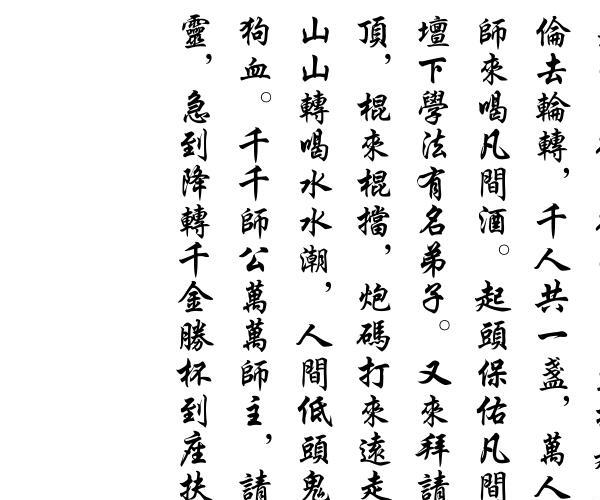 倫去輪轉，千人共一盞，萬人
師來喝凡間酒。起頭保佑凡間
壇下學法有名弟子。又來拜請
頂，棍來棍擋，炮碼打來遠走
山山轉喝水水潮，人間低頭鬼
狗血。千千師公萬萬師主，請
靈，急到降轉千金勝杯到座扶